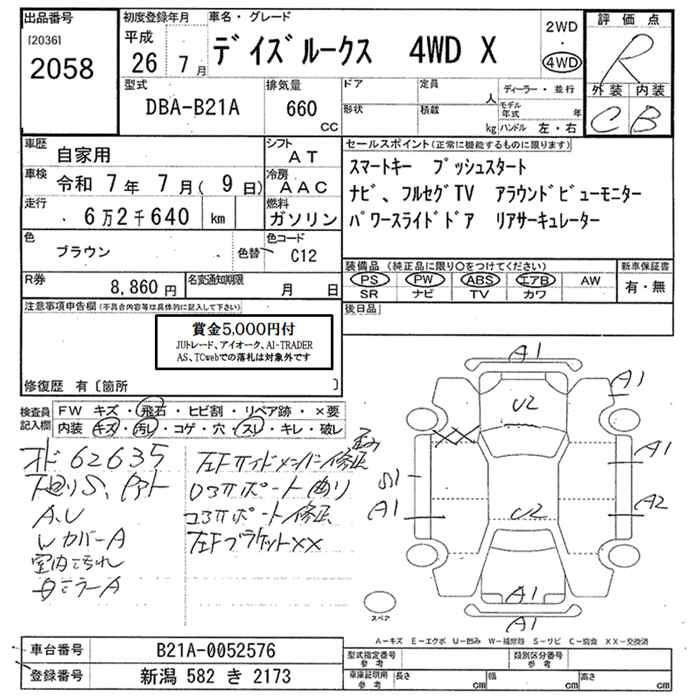 出品番号
[2036]
2058
初度登録年月
平成
26年 7月
車名・グレード
デイズルークス 4WD X
2WD
・
4WD
評価点
R
外装 内装
C B
型式
DBA-B21A
排気量
660
cc
ドア
形状
定員
人
積載
kg
ディーラー・並行
モデル年式 年
ハンドル 左・右
車歴
自家用
シフト
AT
車検
令和 7年 7月( 9日)
冷房
AAC
走行
6万2千640 km
燃料
ガソリン
色
ブラウン
色替
色コード
C12
R券
8,860円
名変通知期限
月 日
セールスポイント(正常に機能するものに限ります)
スマートキー プッシュスタート
ナビ、フルセグTV アラウンドビューモニター
パワースライドドア リアサーキュレーター
装備品(純正品に限り○をつけてください)
PS PW ABS エアB AW
SR ナビ TV カワ
新車保証書
有・無
後日品
注意事項申告欄(不具合内容等は具体的に記入して下さい)
賞金5,000円付
JUトレード、アイオーク、AI-TRADER
AS、TCwebでの落札は対象外です
修復歴 有〔箇所 〕
検査員
記入欄
FW キズ・飛石・ヒビ割・リペア跡・×要
内装 キズ・汚レ・コゲ・穴・スレ・キレ・破レ
62635
A.U
カバーA
室内
左Fサイドメンバー修正
ポート曲り
ポート修正
左Fブラケット××
A1
A1
U2
A1
S1
A1
U2
A2
A1
A1
スペア
A-キズ E-エクボ U-凹み W-補修跡 S-サビ C-腐食 XX-交換済
車台番号
B21A-0052576
登録番号
新潟 582 き 2173
型式指定番号
参考
類別区分番号
参考
車庫証明用
参考
長さ cm
幅 cm
高さ cm